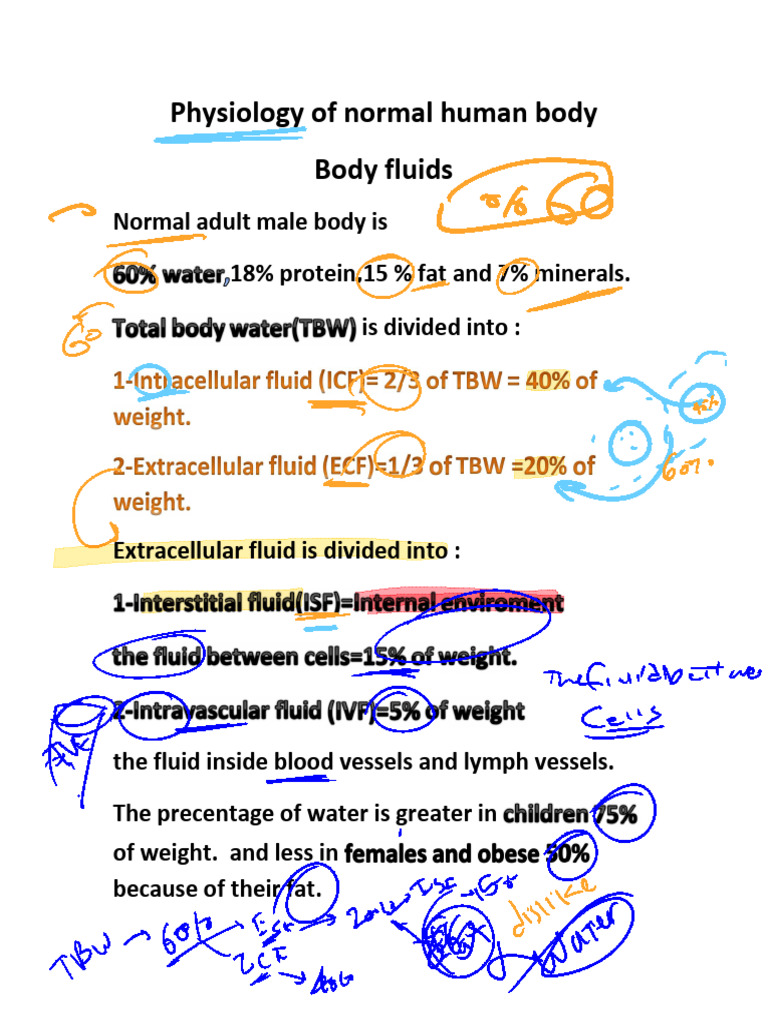 Physiology of normal human body
Body fluids
Normal adult male body is
60% water,18% protein,15 % fat and 7% minerals.
60
Total body water(TBW) is divided into :
1-Intracellular fluid (ICF)= 2/3 of TBW = 40% of
weight.
2-Extracellular fluid (ECF)=1/3 of TBW =20% of
60%
weight.
Extracellular fluid is divided into :
1-Interstitial fluid(ISF)=Internal enviroment
the fluid between cells=15% of weight.
Cells
2-Intravascular fluid (IVF)=5% of weight
the fluid inside blood vessels and lymph vessels.
The precentage of water is greater in children 75%
of weight. and less in females and obese 50%
because of their fat.
dislike
water
TBW
60%
ISF